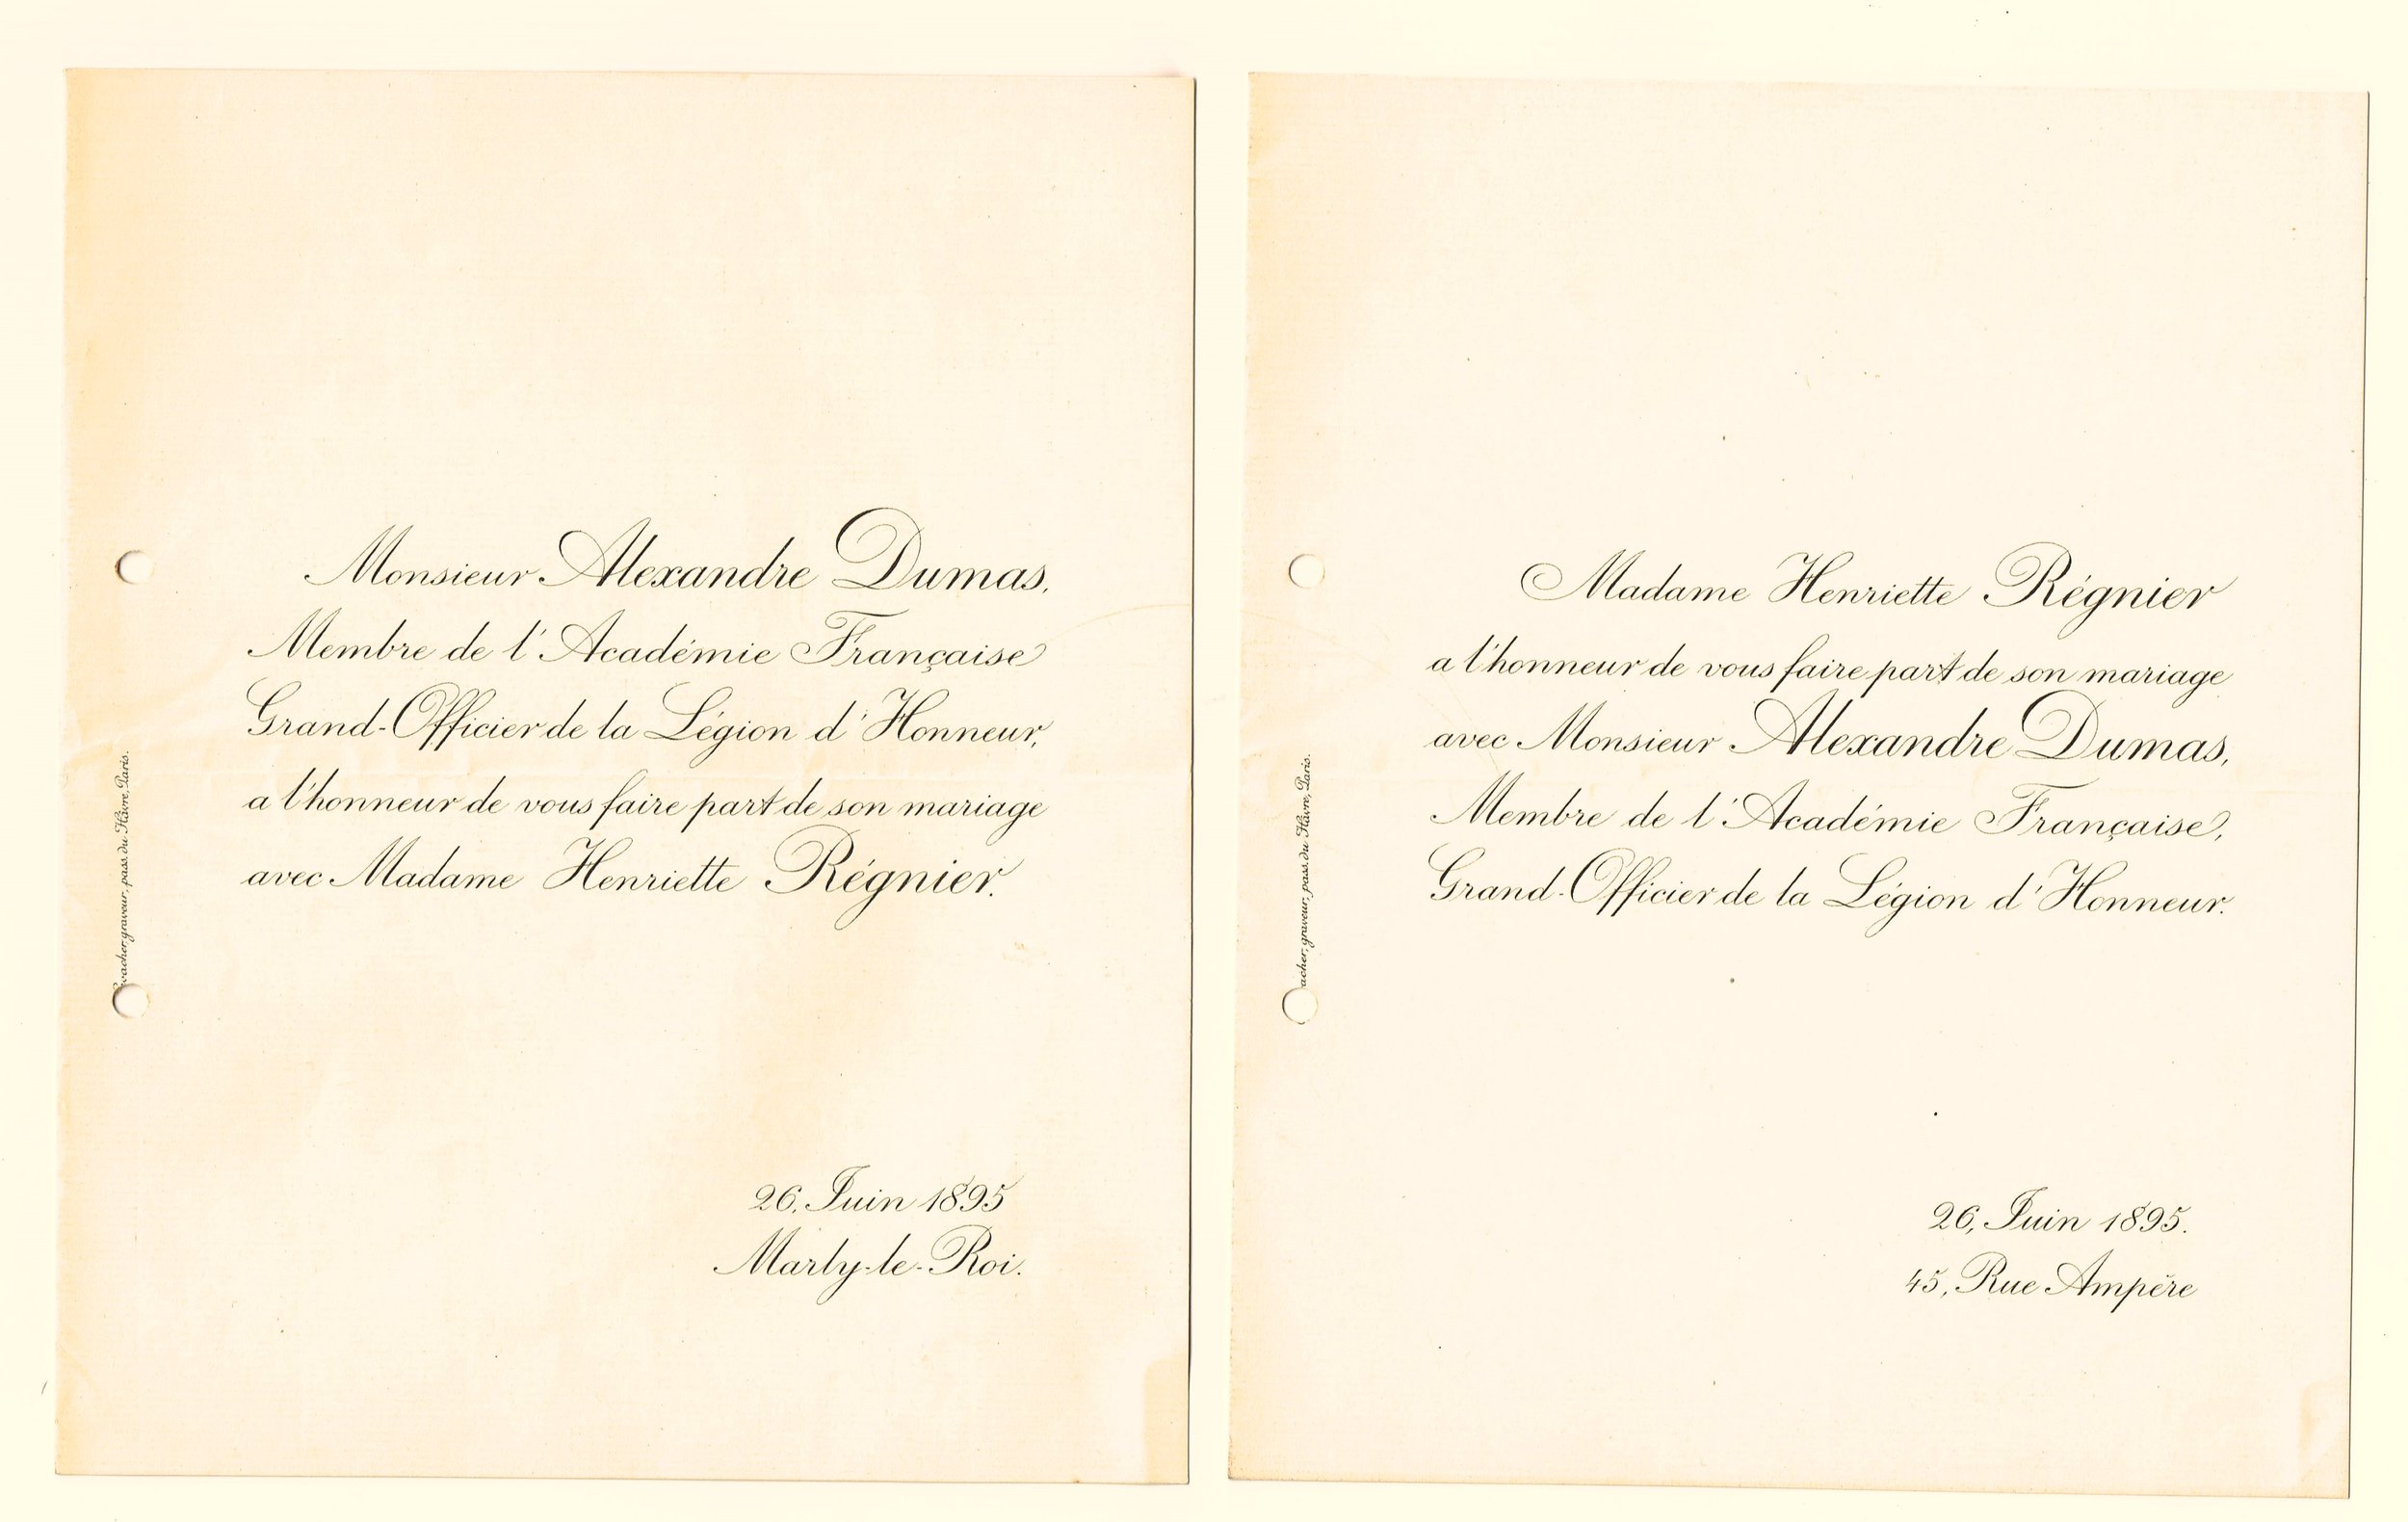 Monsieur Alexandre Dumas,
Membre de l'Académie Française
Grand-Officier de la Légion d'Honneur,
a l'honneur de vous faire part de son mariage
avec Madame Henriette Régnier.
26, Juin 1895
Marly-le-Roi.
graveur, pass. du Hâvre, Paris.
Madame Henriette Régnier
a l'honneur de vous faire part de son mariage
avec Monsieur Alexandre Dumas,
Membre de l'Académie Française,
Grand-Officier de la Légion d'Honneur.
26, Juin 1895.
45, Rue Ampère
graveur, pass. du Hâvre, Paris.